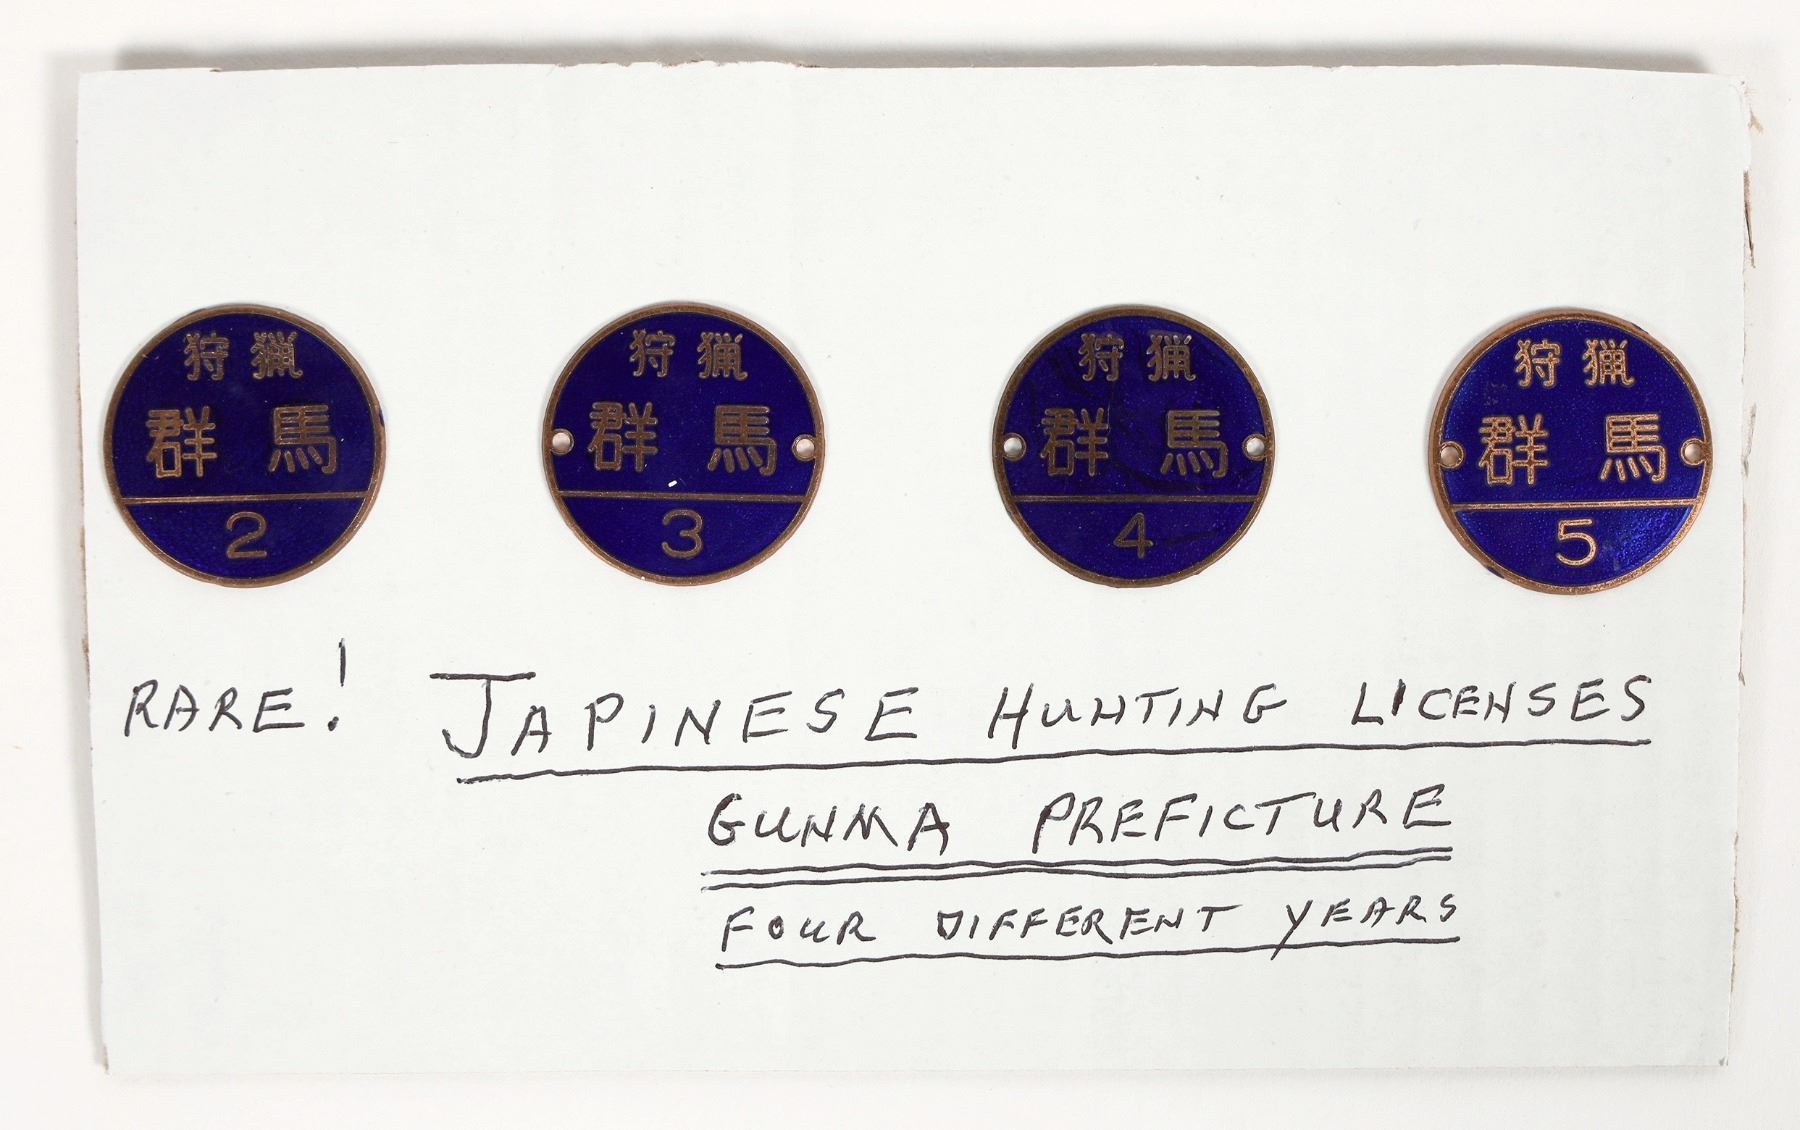 狩猟
群馬
2
狩猟
群馬
3
狩猟
群馬
4
狩猟
群馬
5
RARE! JAPINESE HUNTING LICENSES
GUNMA PREFICTURE
FOUR DIFFERENT YEARS